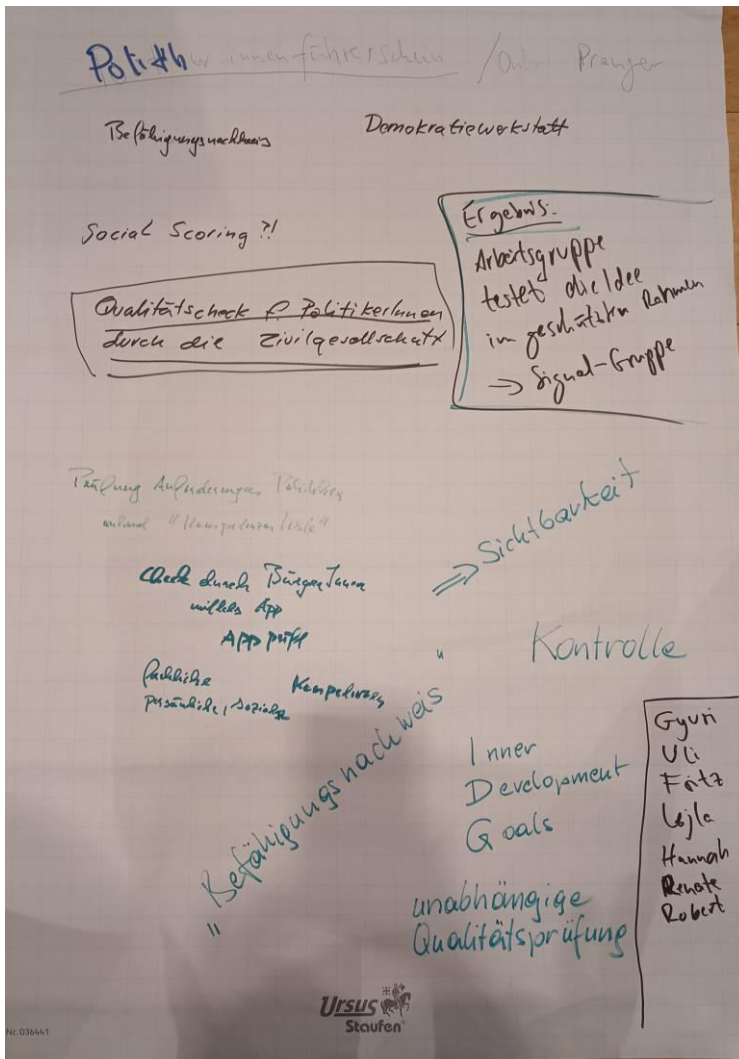 Politiker:innenführerschein / Online Pranger
Befähigungsnachweis
Demokratiewerkstatt
Social Scoring ?!
Qualitätscheck f. PolitikerInnen
durch die Zivilgesellschaft
Ergebnis:
Arbeitsgruppe
testet die Idee
im geschützten Rahmen
=> Signal-Gruppe
Prüfung Anforderungen
anhand "Kompetenzen Liste"
=> Sichtbarkeit
Check durch BürgerInnen
mittels App
App prüft
fachliche
persönliche, soziale
Kompetenzen
Kontrolle
"Befähigungsnachweis"
Inner
Development
Goals
unabhängige
Qualitätsprüfung
Gyuri
Uli
Fritz
Lejla
Hannah
Renate
Robert
Ursus
Staufen
Nr. 036441